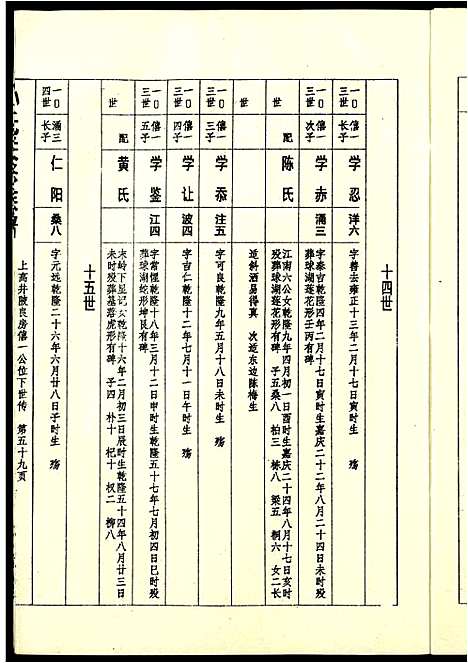 十四世
一〇三世 僖一子 学忍 洋六 字善去雍正十三年二月十七日寅时生 殇
一〇三世 僖一次子 学赤 涌三 字泰吉乾隆四年二月十七日寅时生嘉庆二十二年八月二十四日未时殁
葬球湖莲花形壬丙有碑
配 陈氏 江南六公女乾隆九年四月初一日酉时生嘉庆二十四年八月十七日亥时
殁葬球湖莲花形有碑 子五桑八 柏三 栋八 梁五 桐六 女二长
世 适斜酒易得真 次适东边陈梅生
一〇三世 僖一三子 学忝 注五 字可良乾隆九年五月十八日未时生 殇
一〇三世 僖一四子 学让 波四 字吉仁乾隆十二年七月十一日午时生 殇
一〇三世 僖一五子 学鉴 江四 字常惺乾隆十八年三月十二日申时生乾隆五十七年七月初四日巳时殁
葬球湖蛇形坤艮有碑
世 配 黄氏 末岭下显记女乾隆十六年二月初三日辰时生乾隆五十四年八月廿三日
未时殁葬墓窘虎形有碑 子四 朴十 杞十 权二 柳八
十五世
一〇四世 涌三长子 仁阳 桑八 字元选乾隆二十六年六月廿八日子时生 殇
上高井陂良房僖一公位下世传 第五十九页